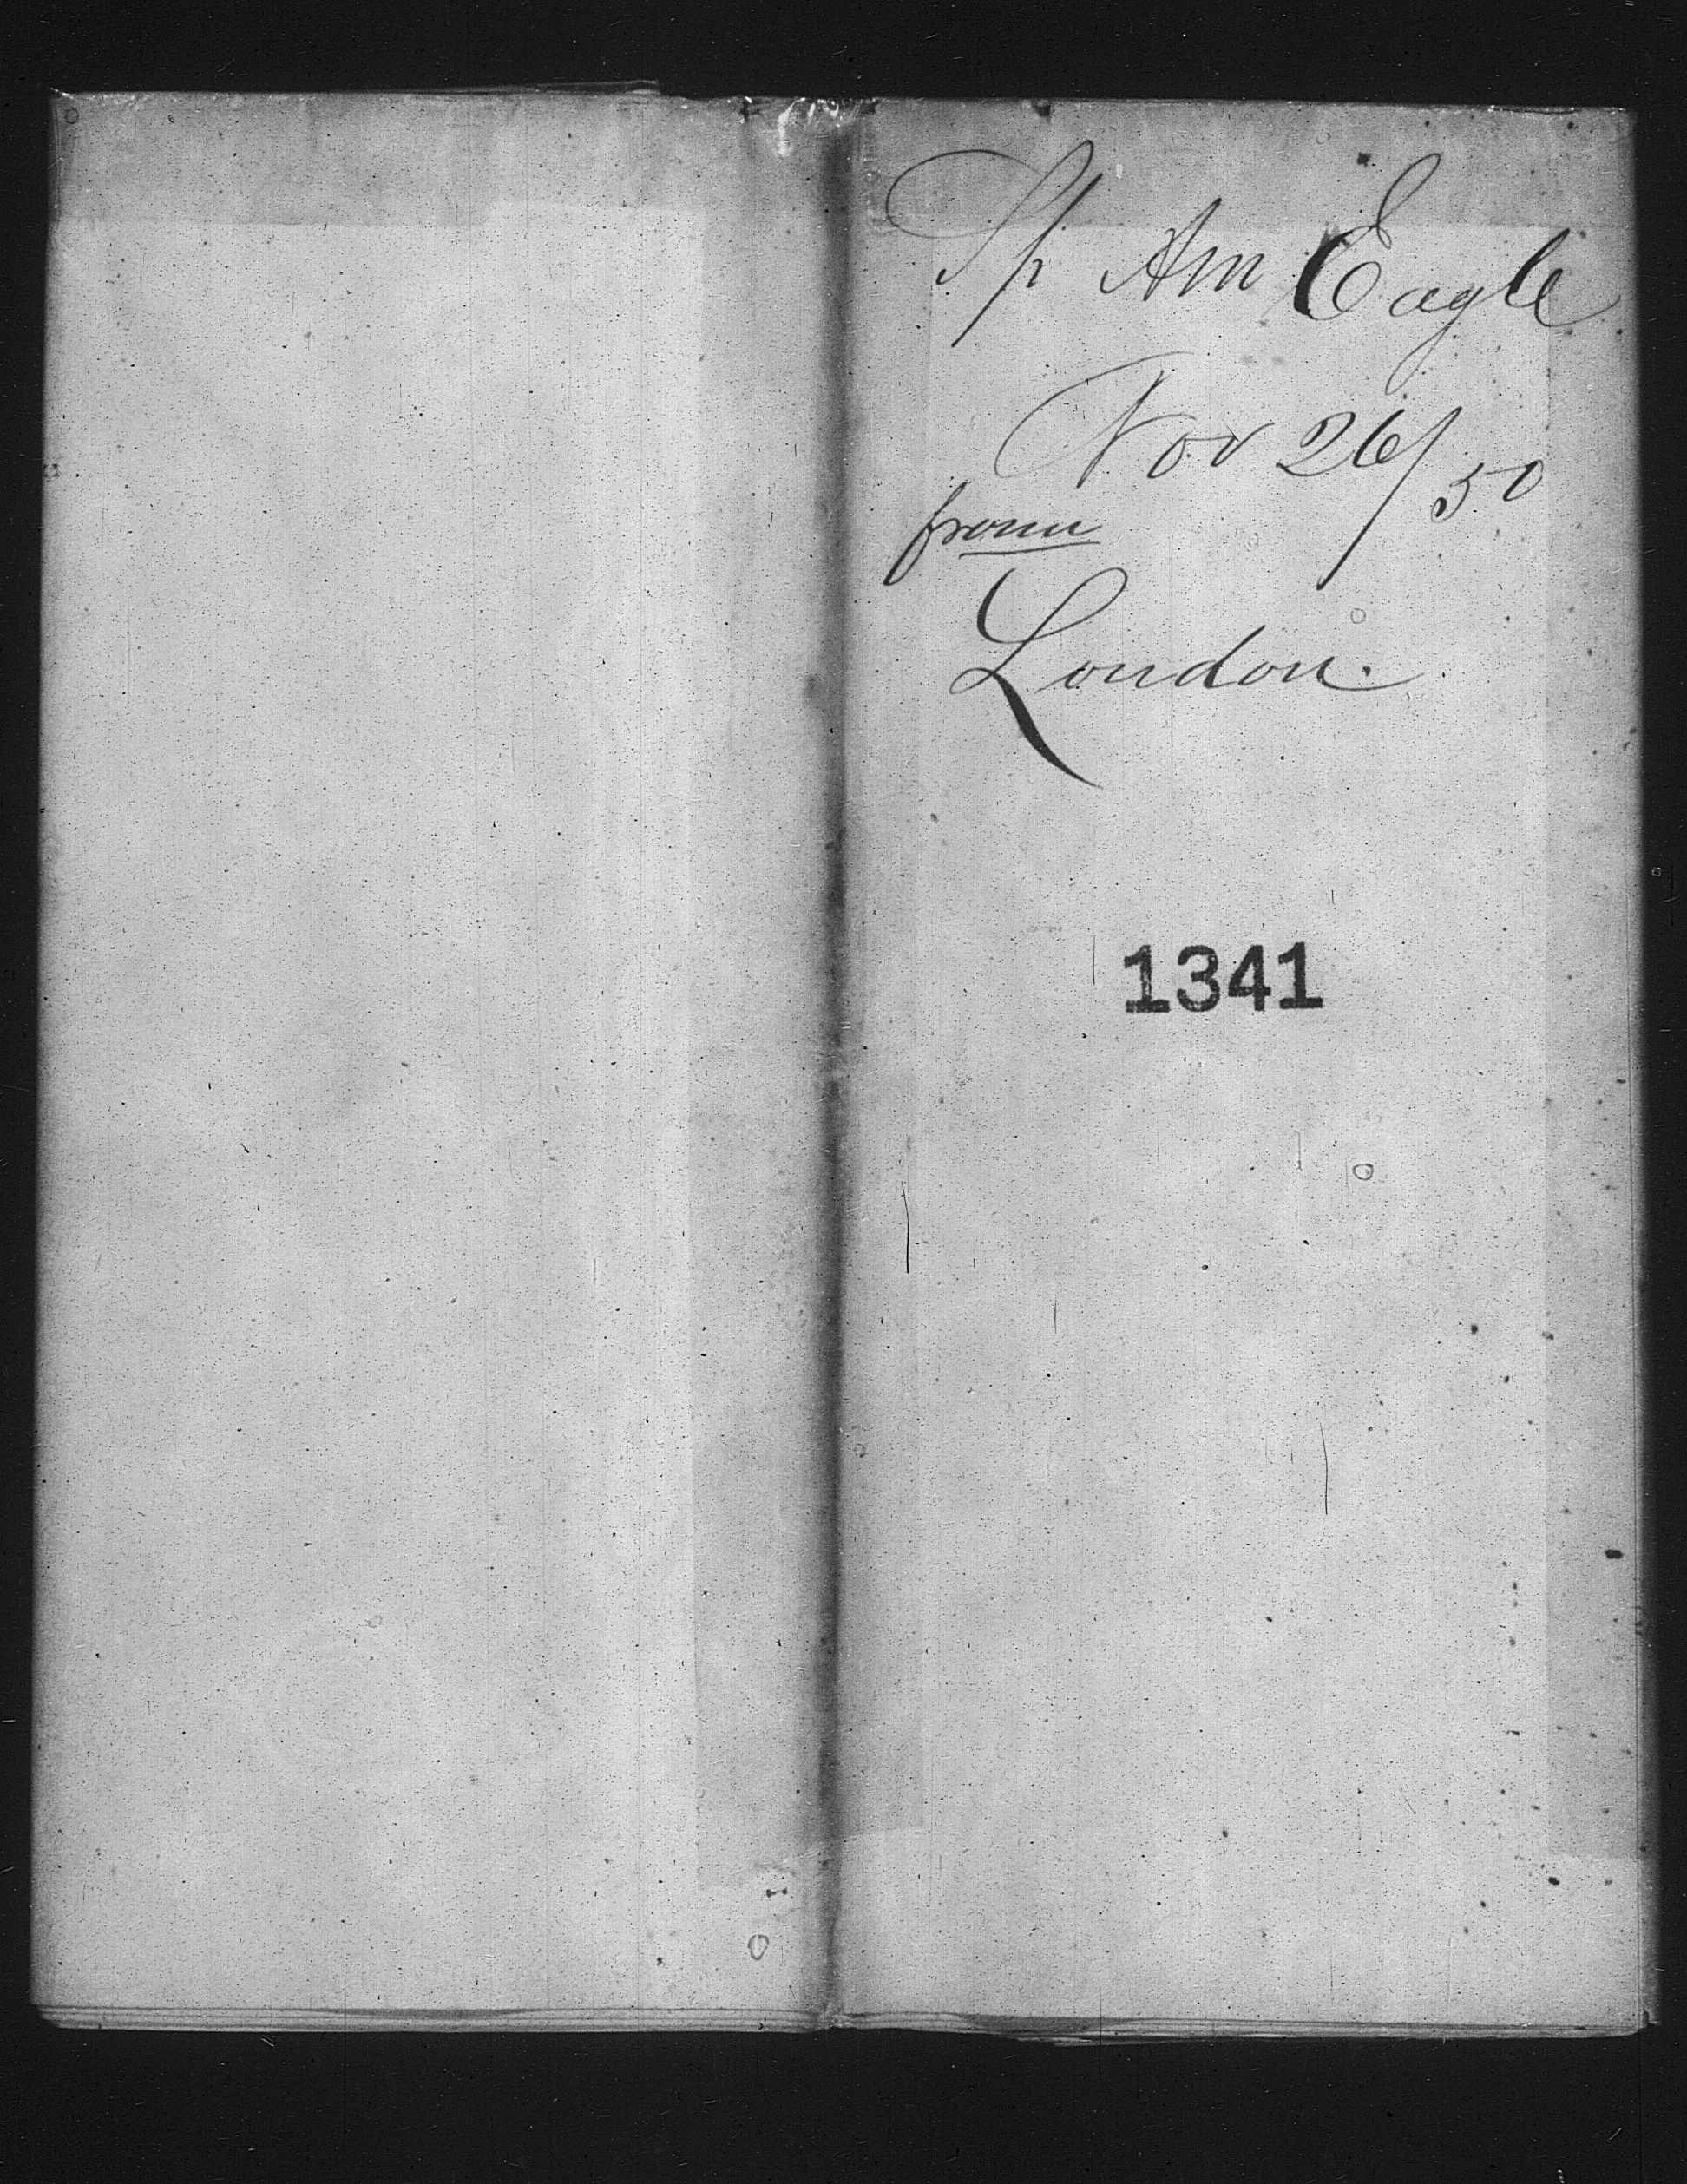 Sh Am Eagle
Nov 26/50
from
London.
1341